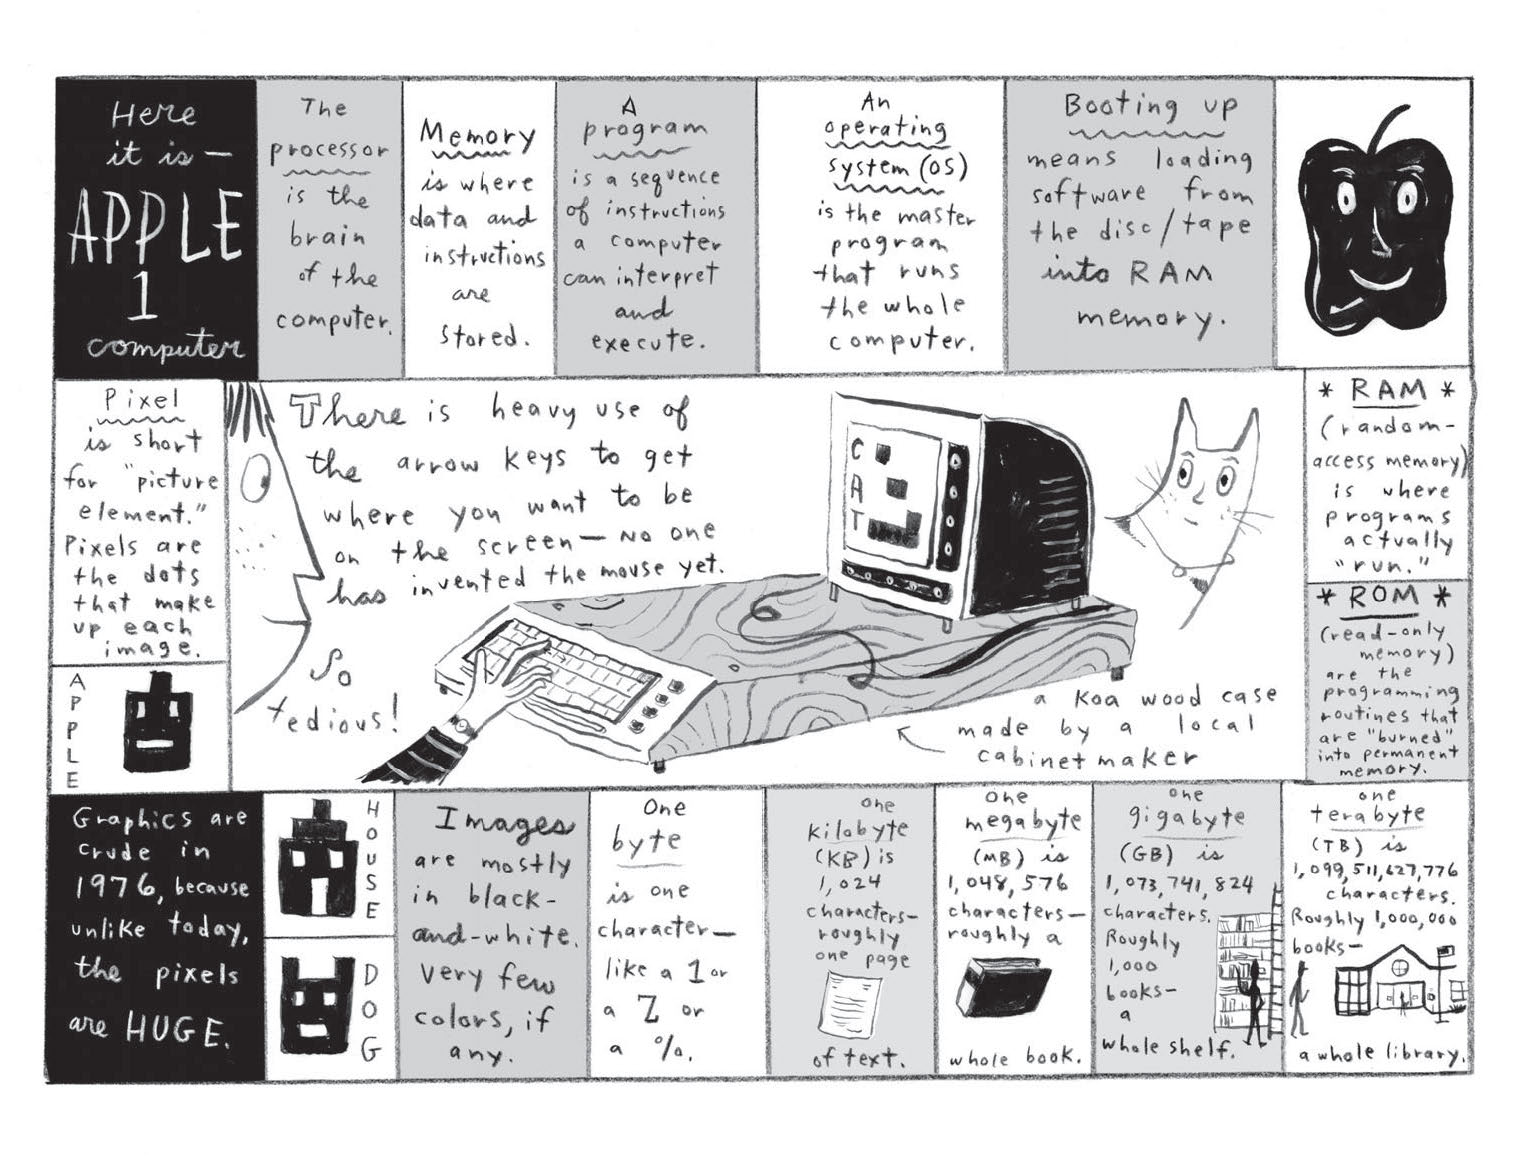 Here
it is —
APPLE
1
computer
The
processor
is the
brain
of the
computer.
Memory
is where
data and
instructions
are
stored.
A
program
is a sequence
of instructions
a computer
can interpret
and
execute.
An
operating
system (OS)
is the master
program
that runs
the whole
computer.
Booting up
means loading
software from
the disc/tape
into RAM
memory.
Pixel
is short
for "picture
element."
Pixels are
the dots
that make
up each
image.
APPLE
There is heavy use of
the arrow keys to get
where you want to be
on the screen — no one
has invented the mouse yet.
So
tedious!
CAT
a koa wood case
made by a local
cabinet maker
* RAM *
(random-
access memory)
is where
programs
actually
"run."
* ROM *
(read-only
memory)
are the
programming
routines that
are "burned"
into permanent
memory.
Graphics are
crude in
1976, because
unlike today,
the pixels
are HUGE.
HOUSE
DOG
Images
are mostly
in black-
and-white.
Very few
colors, if
any.
One
byte
is one
character —
like a 1 or
a Z or
a %.
One
kilobyte
(KB) is
1,024
characters —
roughly
one page
of text.
One
megabyte
(MB) is
1,048,576
characters —
roughly a
whole book.
One
gigabyte
(GB) is
1,073,741,824
characters.
Roughly
1,000
books —
a
whole shelf.
One
terabyte
(TB) is
1,099,511,627,776
characters.
Roughly 1,000,000
books —
a whole library.